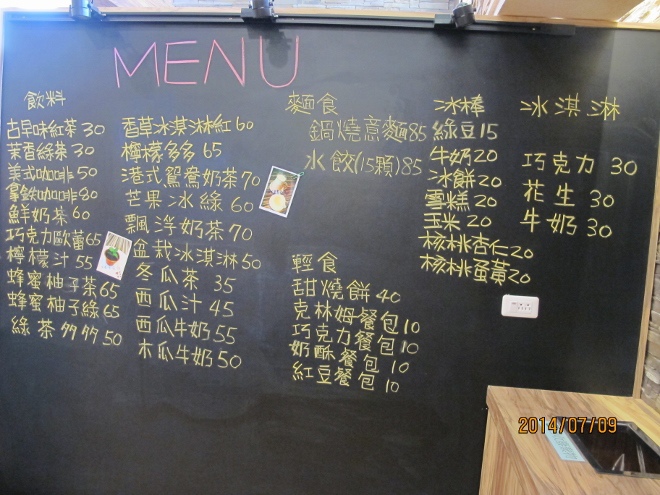 MENU
飲料
古早味紅茶 30
茉香綠茶 30
美式咖啡 50
拿鐵咖啡 80
鮮奶茶 60
巧克力歐蕾 65
檸檬汁 55
蜂蜜柚子茶 65
蜂蜜柚子綠 65
綠茶多多 50
香草冰淇淋紅 60
檸檬多多 65
港式鴛鴦奶茶 70
芒果冰綠 60
飄浮奶茶 70
盆栽冰淇淋 50
冬瓜茶 35
西瓜汁 45
西瓜牛奶 55
木瓜牛奶 50
麵食
鍋燒意麵 85
水餃(15顆) 85
輕食
甜燒餅 40
克林姆餐包 10
巧克力餐包 10
奶酥餐包 10
紅豆餐包 10
冰棒
綠豆 15
牛奶 20
冰餅 20
雪糕 20
玉米 20
核桃杏仁 20
核桃蛋黃 20
冰淇淋
巧克力 30
花生 30
牛奶 30
2014/07/09